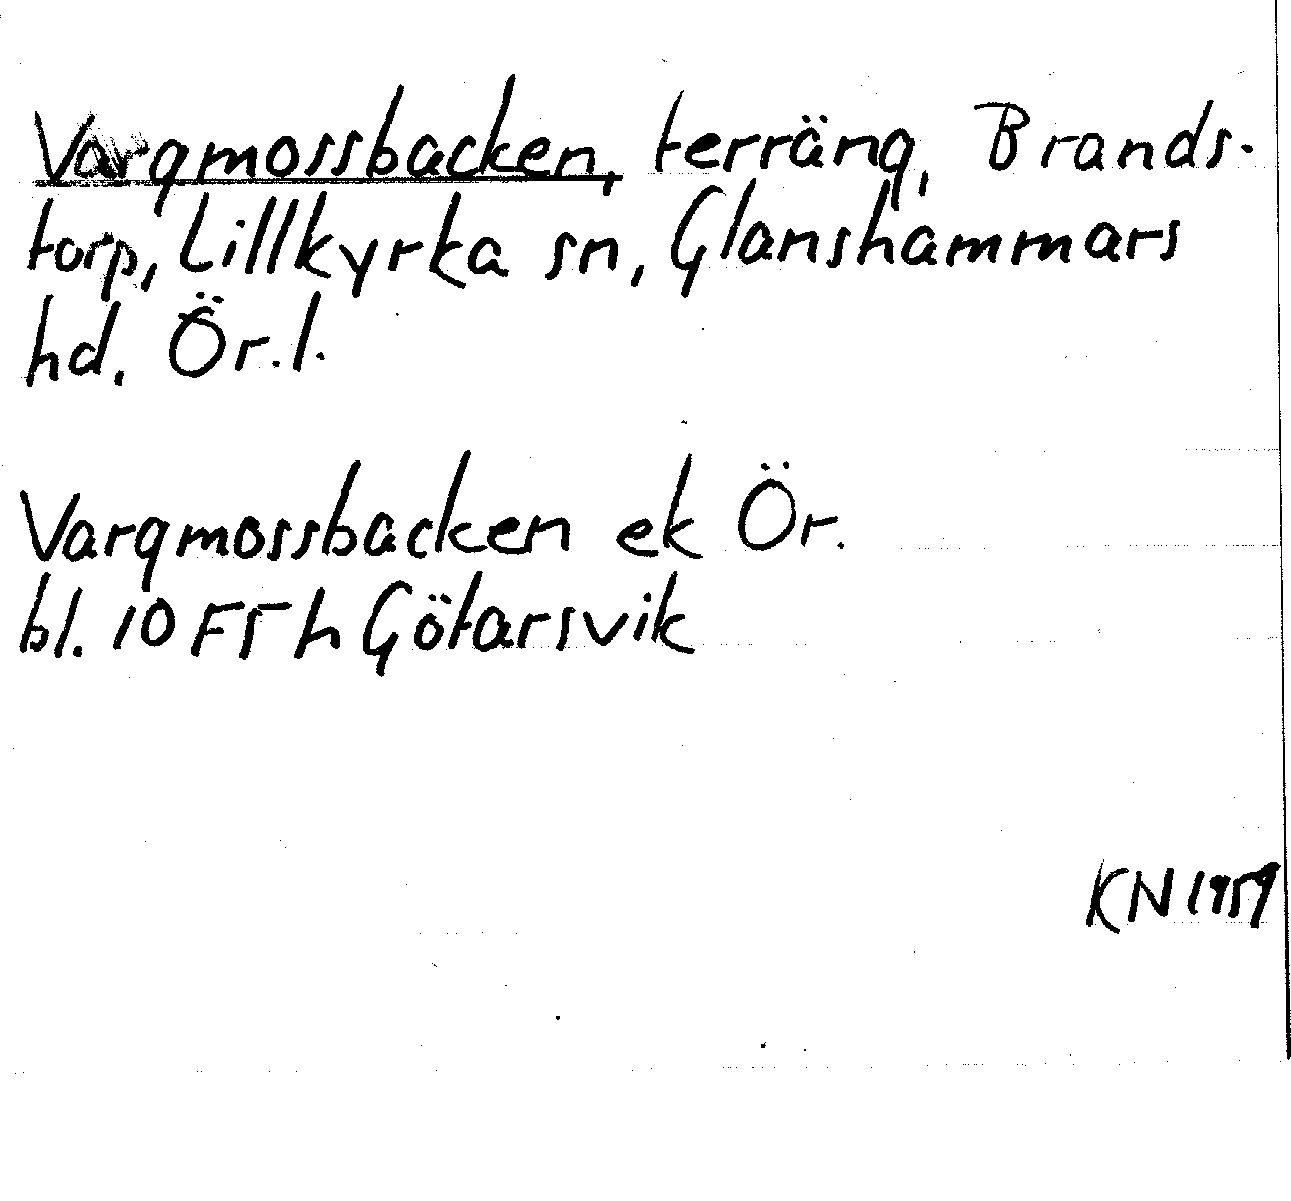 Vargmossbacken, terräng, Brands-
torp, Lillkyrka sn, Glanshammars
hd. Ör. l.
Vargmossbacken ek Ör.
bl. 10 F5 h Götarsvik
KN 1959